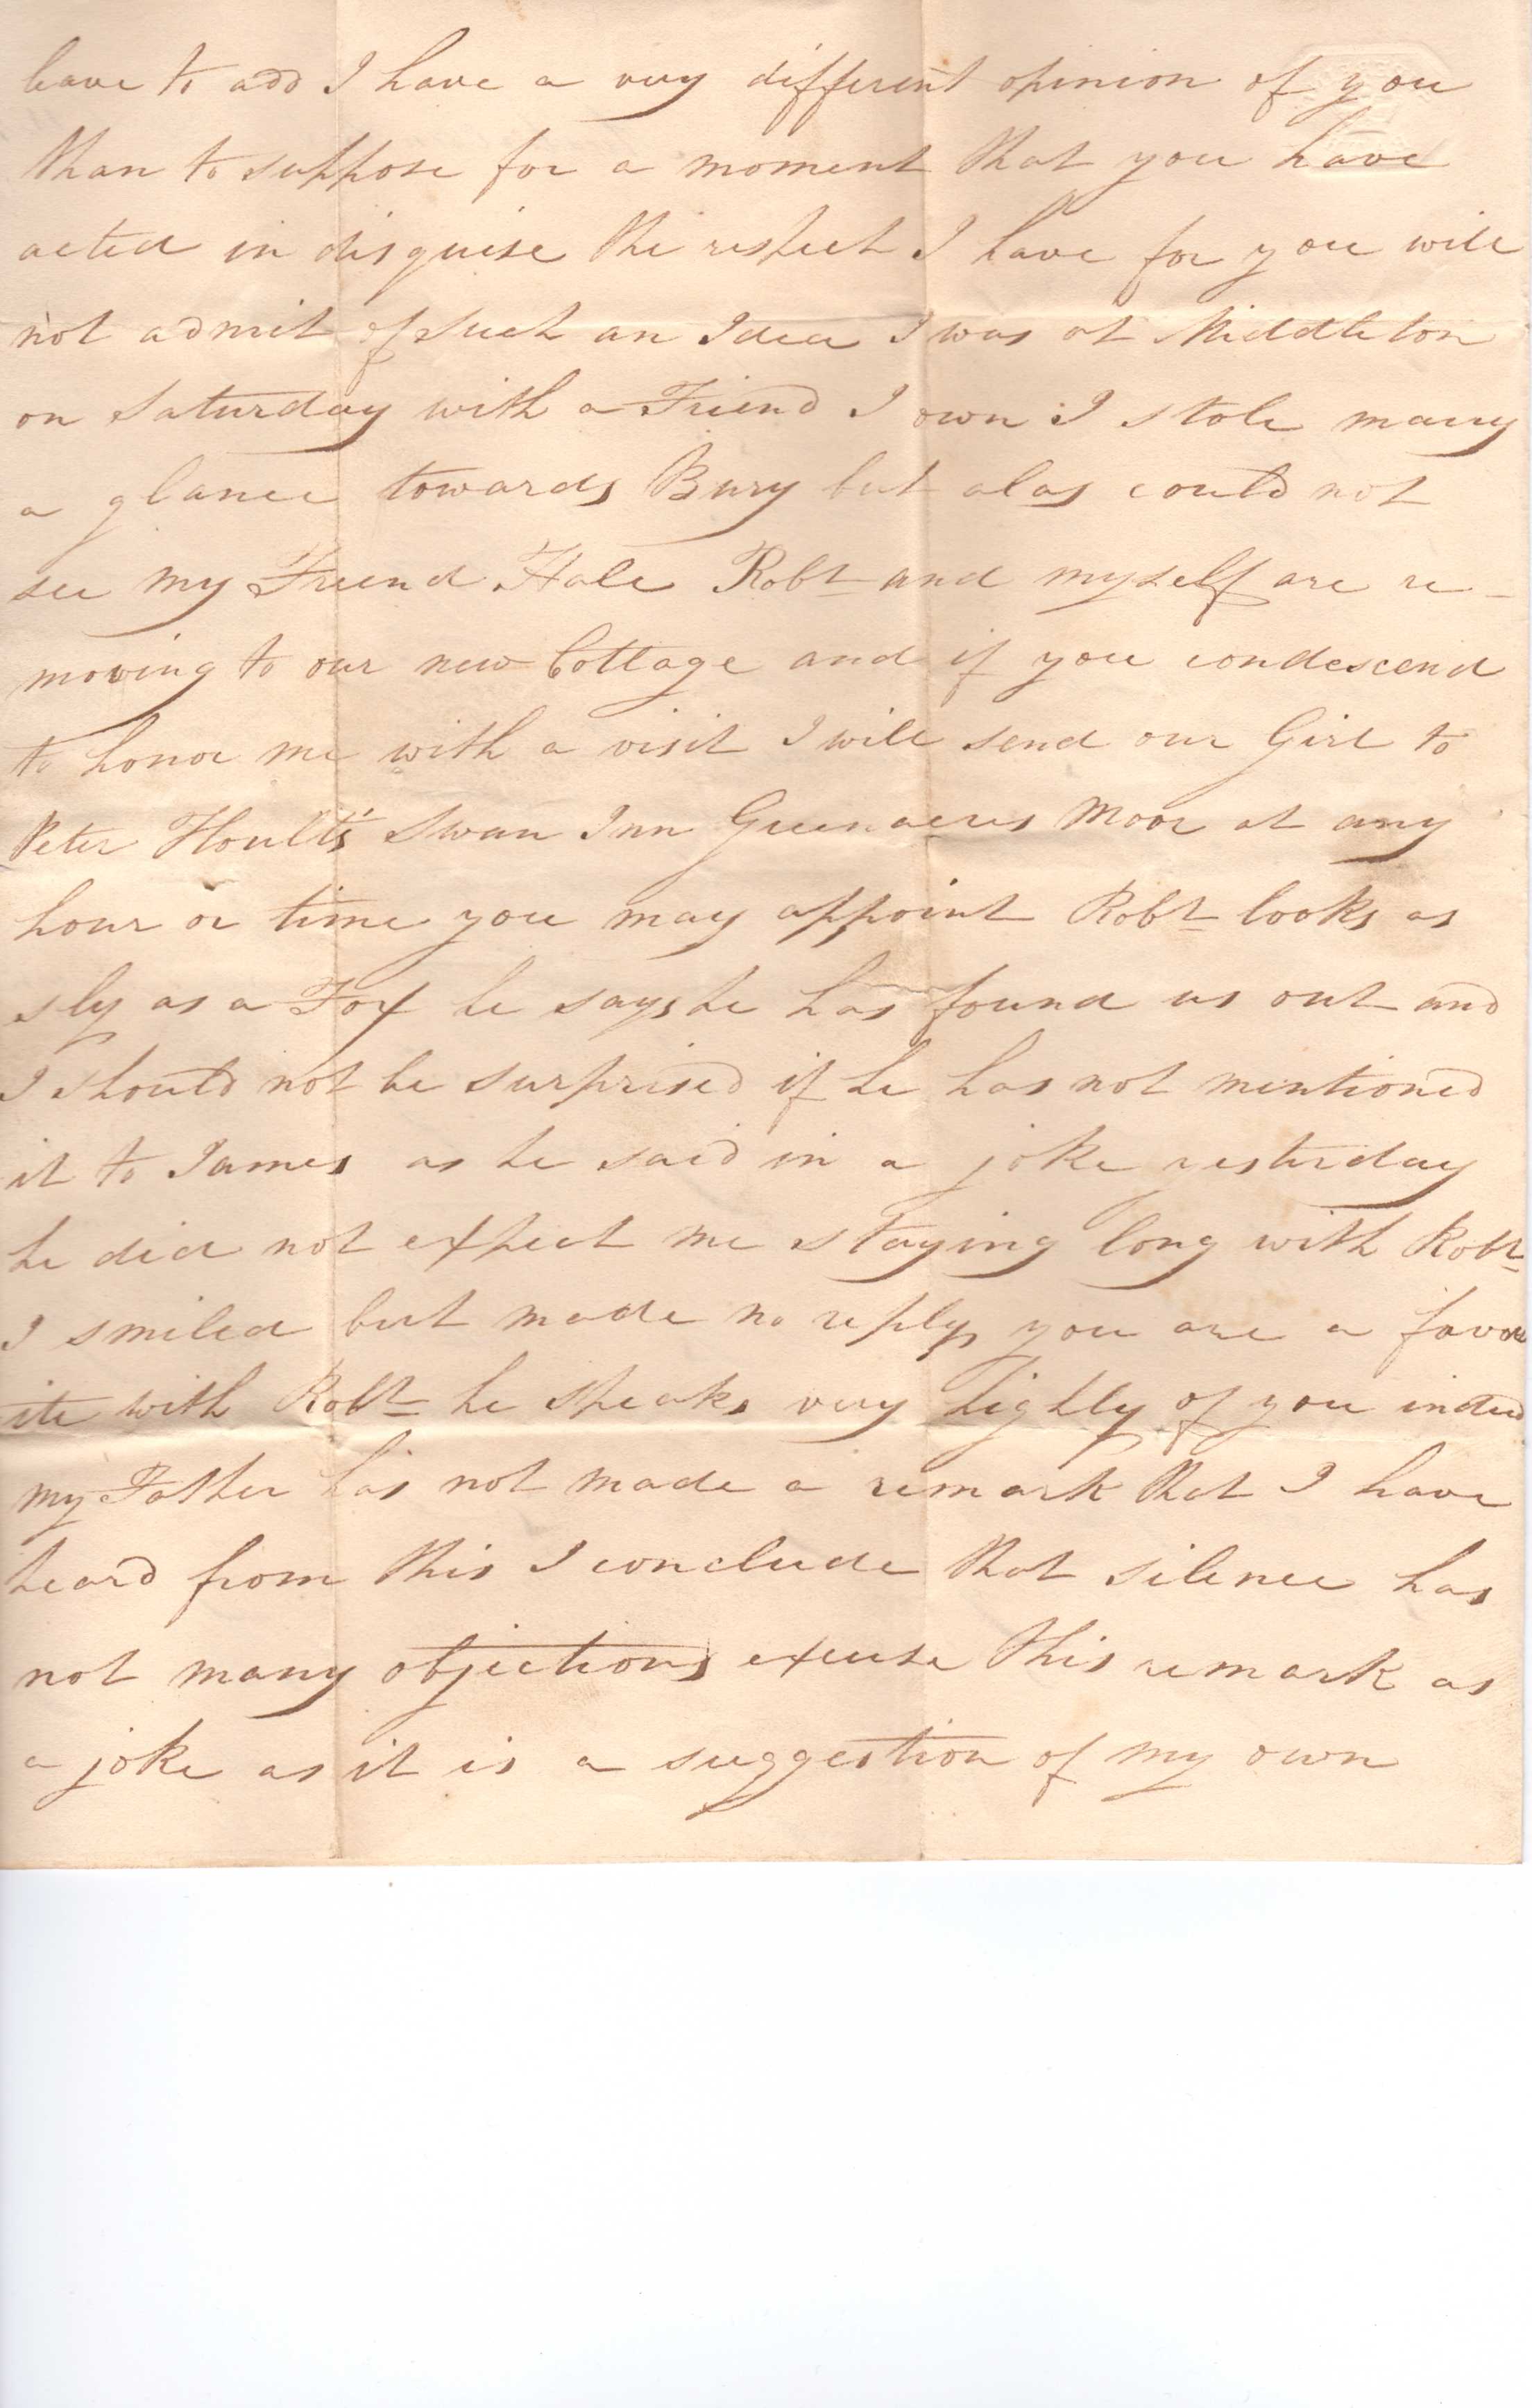 leave to add I have a very different opinion of you
than to suppose for a moment that you have
acted in disguise the respect I have for you will
not admit of such an Idea I was at Middleton
on Saturday with a Friend I own I stole many
a glance towards Bury but alas could not
see my Friend Hale Robt and myself are re-
moving to our new Cottage and if you condescend
to honor me with a visit I will send our Girl to
Peter Hoult's Swan Inn Greenacres Moor at any
hour or time you may appoint Robt looks as
sly as a Fox he says he has found us out and
I should not be surprised if he has not mentioned
it to James as he said in a joke yesterday
he did not expect me staying long with Robt
I smiled but made no reply you are a favor
ite with Robt he speaks very highly of you indeed
my Father has not made a remark that I have
heard from this I conclude that silence has
not many objections excuse this remark as
a joke as it is a suggestion of my own